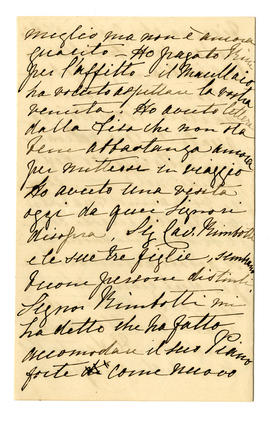 meglio ma non è ancora
guarito - Ho pagato
per l'affitto - il Macellaio
ha voluto aspettare la vostra
venuta - Ho avuto lettera
dalla Lisa che non sta
bene abbastanza ancora
per mettersi in viaggio
Ho avuto una visita
oggi da quei Signori
disopra Sig Cav. Nimbotti
e le sue tre figlie, sembrano
buone persone distinte
Signor Nimbotti mi
ha detto che ha fatto
accomodare il suo Piano
forte come nuovo